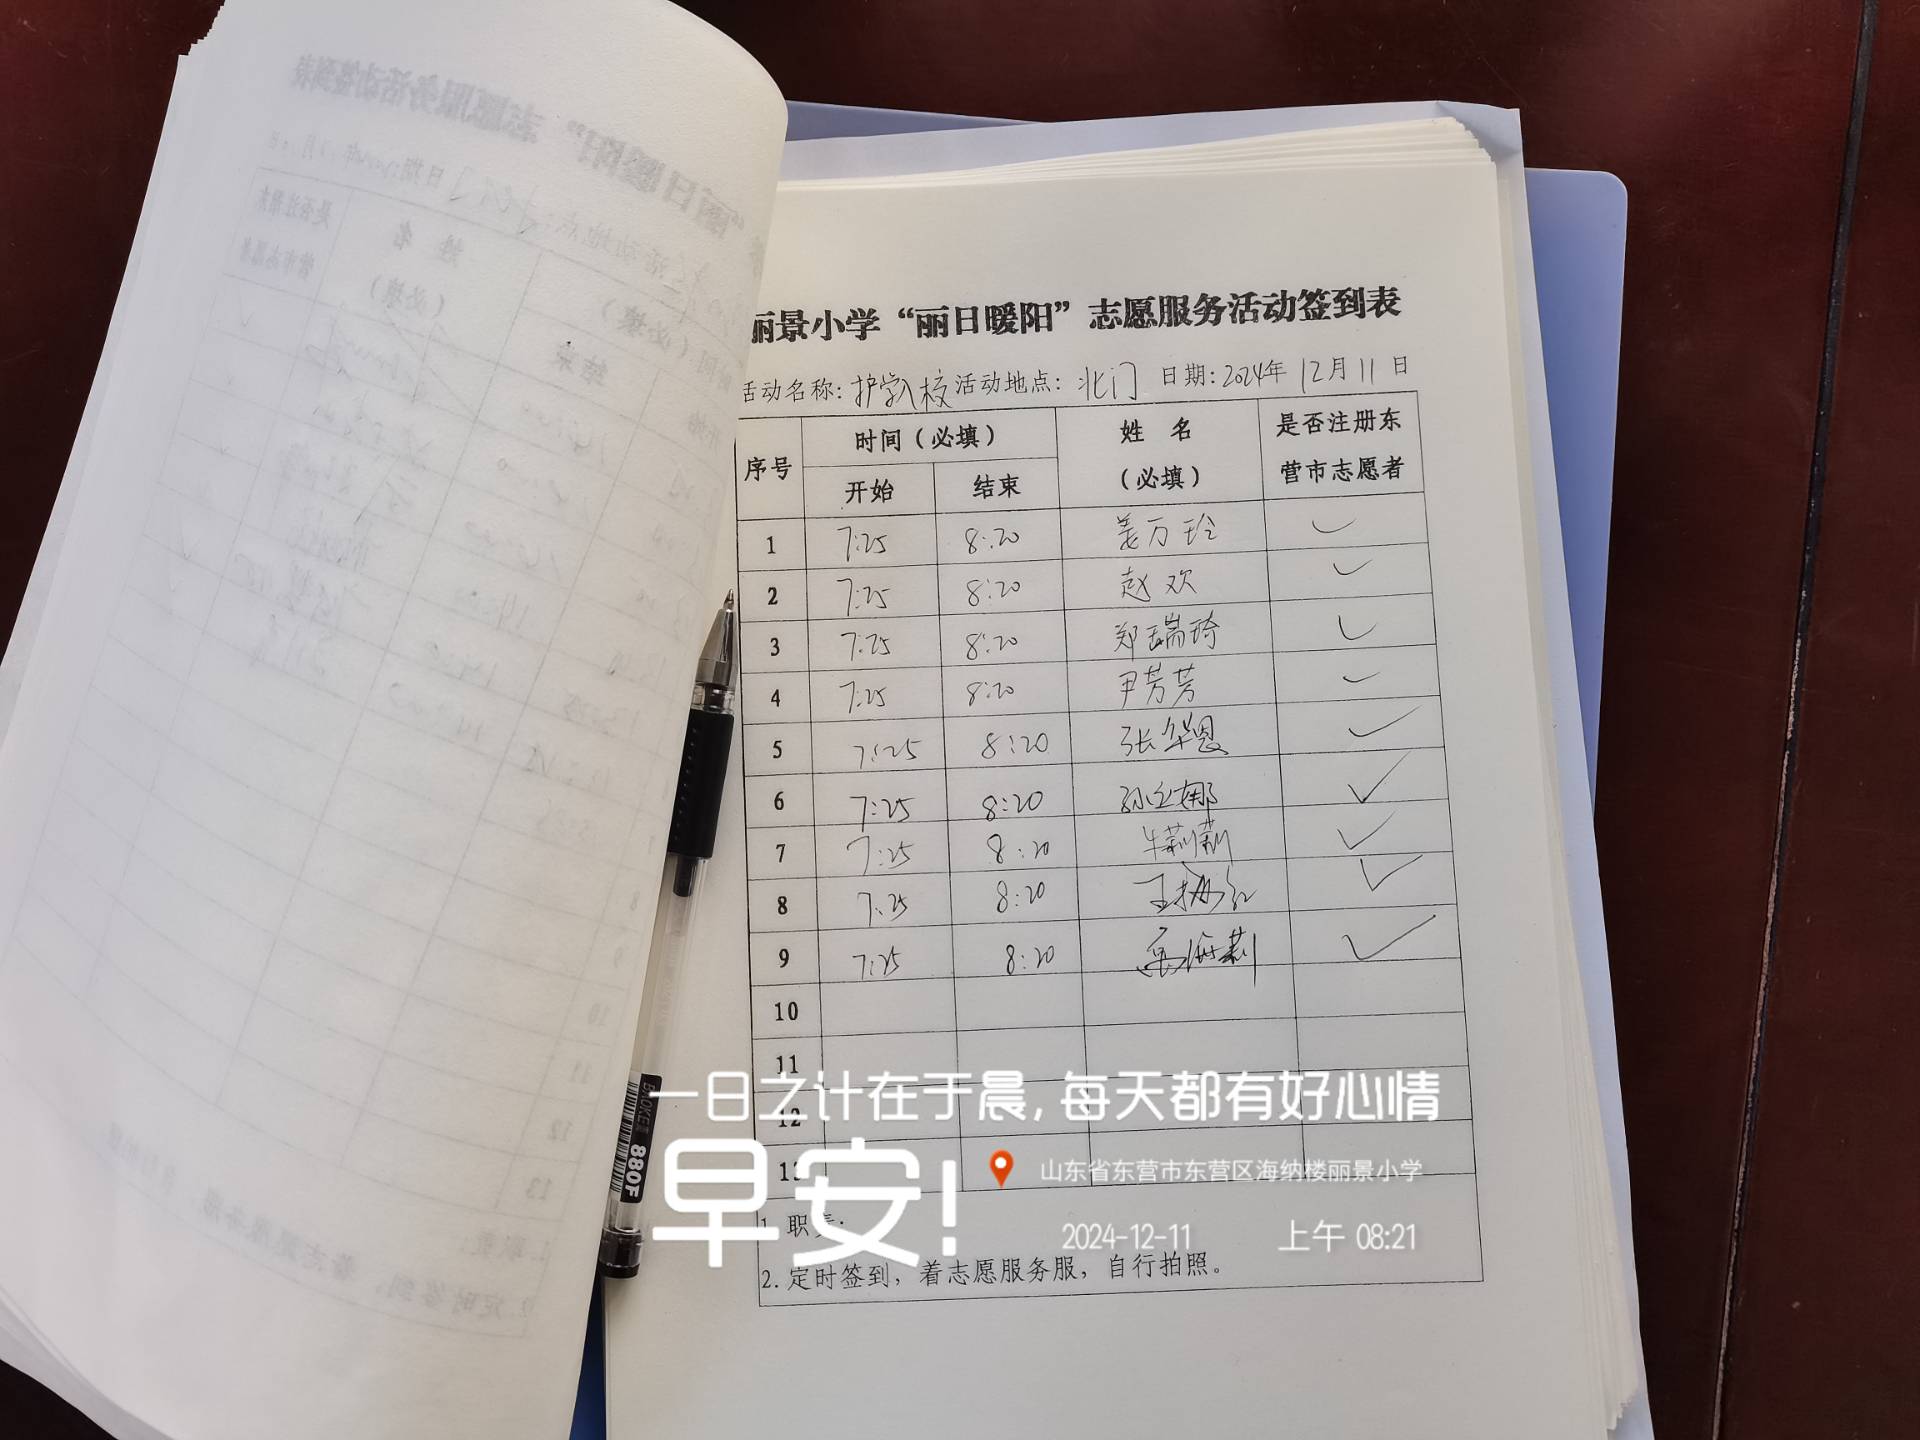 丽景小学“丽日暖阳”志愿服务活动签到表
活动名称：护学入校 活动地点：北门 日期：2024年 12月 11日
序号 时间（必填） 姓 名（必填） 是否注册东营市志愿者
开始 结束
1 7:25 8:20 姜万玲 ✓
2 7:25 8:20 赵欢 ✓
3 7:25 8:20 郑瑞琦 ✓
4 7:25 8:20 尹芳芳 ✓
5 7:25 8:20 张 ✓
6 7:25 8:20 孙 娜 ✓
7 7:25 8:20 牛莉莉 ✓
8 7:25 8:20 王 红 ✓
9 7:25 8:20 莉 ✓
10
11
一日之计在于晨, 每天都有好心情
12
早安!
山东省东营市东营区海纳楼丽景小学
13
1. 职责：
2024-12-11 上午 08:21
2. 定时签到，着志愿服务服，自行拍照。
BAOKE 880F